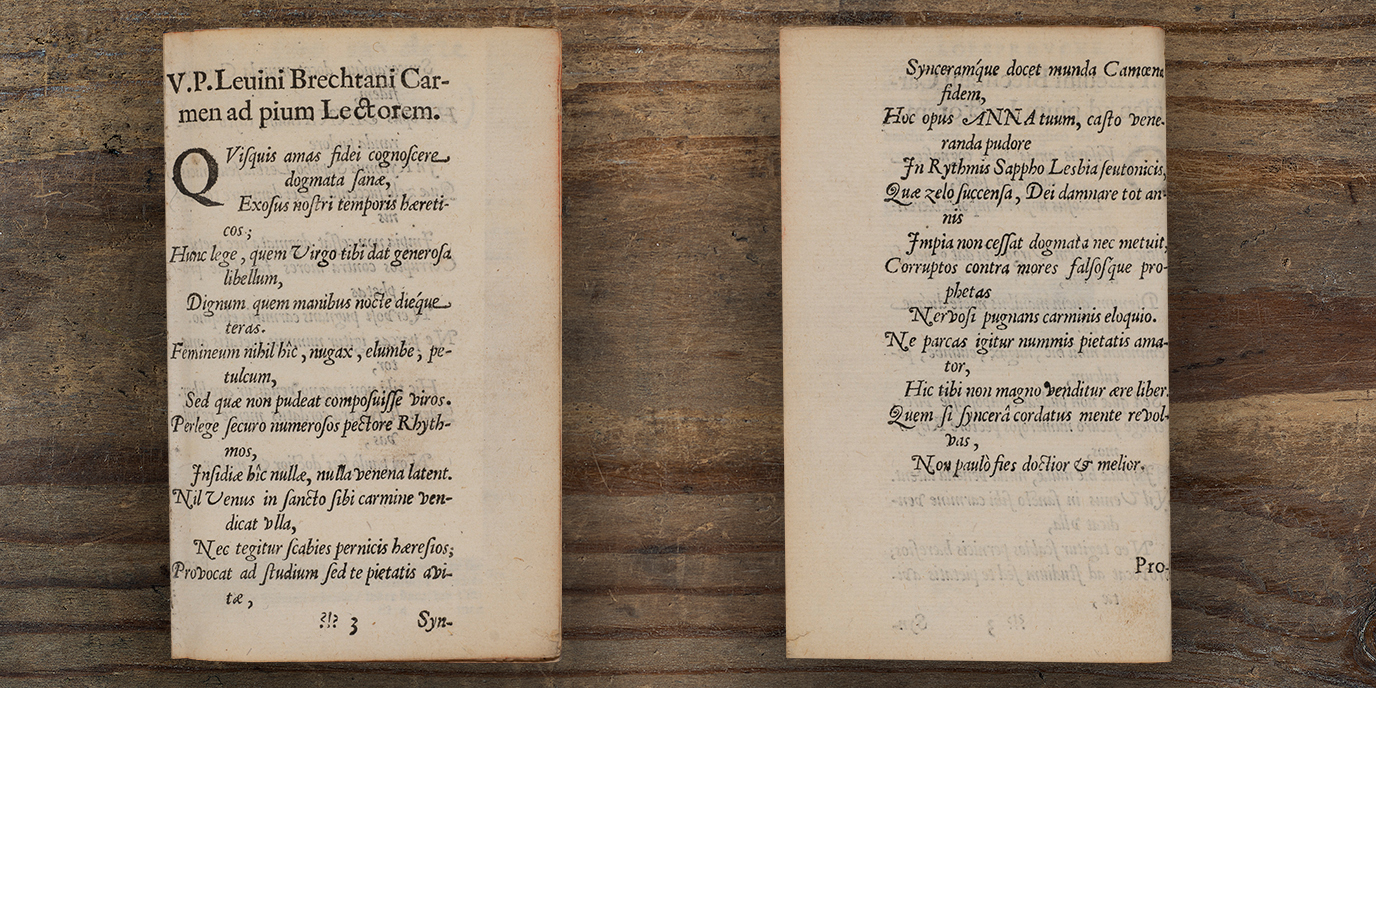 V.P. Leuini Brechtani Car-
men ad pium Lectorem.
QVisquis amas fidei cognoscere
dogmata sanæ,
Exosus nostri temporis hæreti-
cos;
Hunc lege, quem Virgo tibi dat generosa
libellum,
Dignum quem manibus nocte diéque
teras.
Femineum nihil hîc, nugax, elumbe, pe-
tulcum,
Sed quæ non pudeat composuisse viros.
Perlege securo numerosos pectore Rhyth-
mos,
Insidiæ hîc nullæ, nulla venena latent.
Nil Venus in sancto sibi carmine ven-
dicat vlla,
Nec tegitur scabies pernicis hæresios;
Provocat ad studium sed te pietatis avi-
tæ,
?!? 3 Syn-
Synceramq́ue docet munda Camœna
fidem,
Hoc opus ANNA tuum, casto vene-
randa pudore
In Rythmis Sappho Lesbia seutonicis,
Quæ zelo succensa, Dei damnare tot an-
nis
Impia non cessat dogmata nec metuit,
Corruptos contra mores falsosq́ue pro-
phetas
Nervosi pugnans carminis eloquio.
Ne parcas igitur nummis pietatis ama-
tor,
Hic tibi non magno venditur ære liber.
Quem si syncerâ cordatus mente revol-
vas,
Non paulò fies doctior & melior.
Pro-